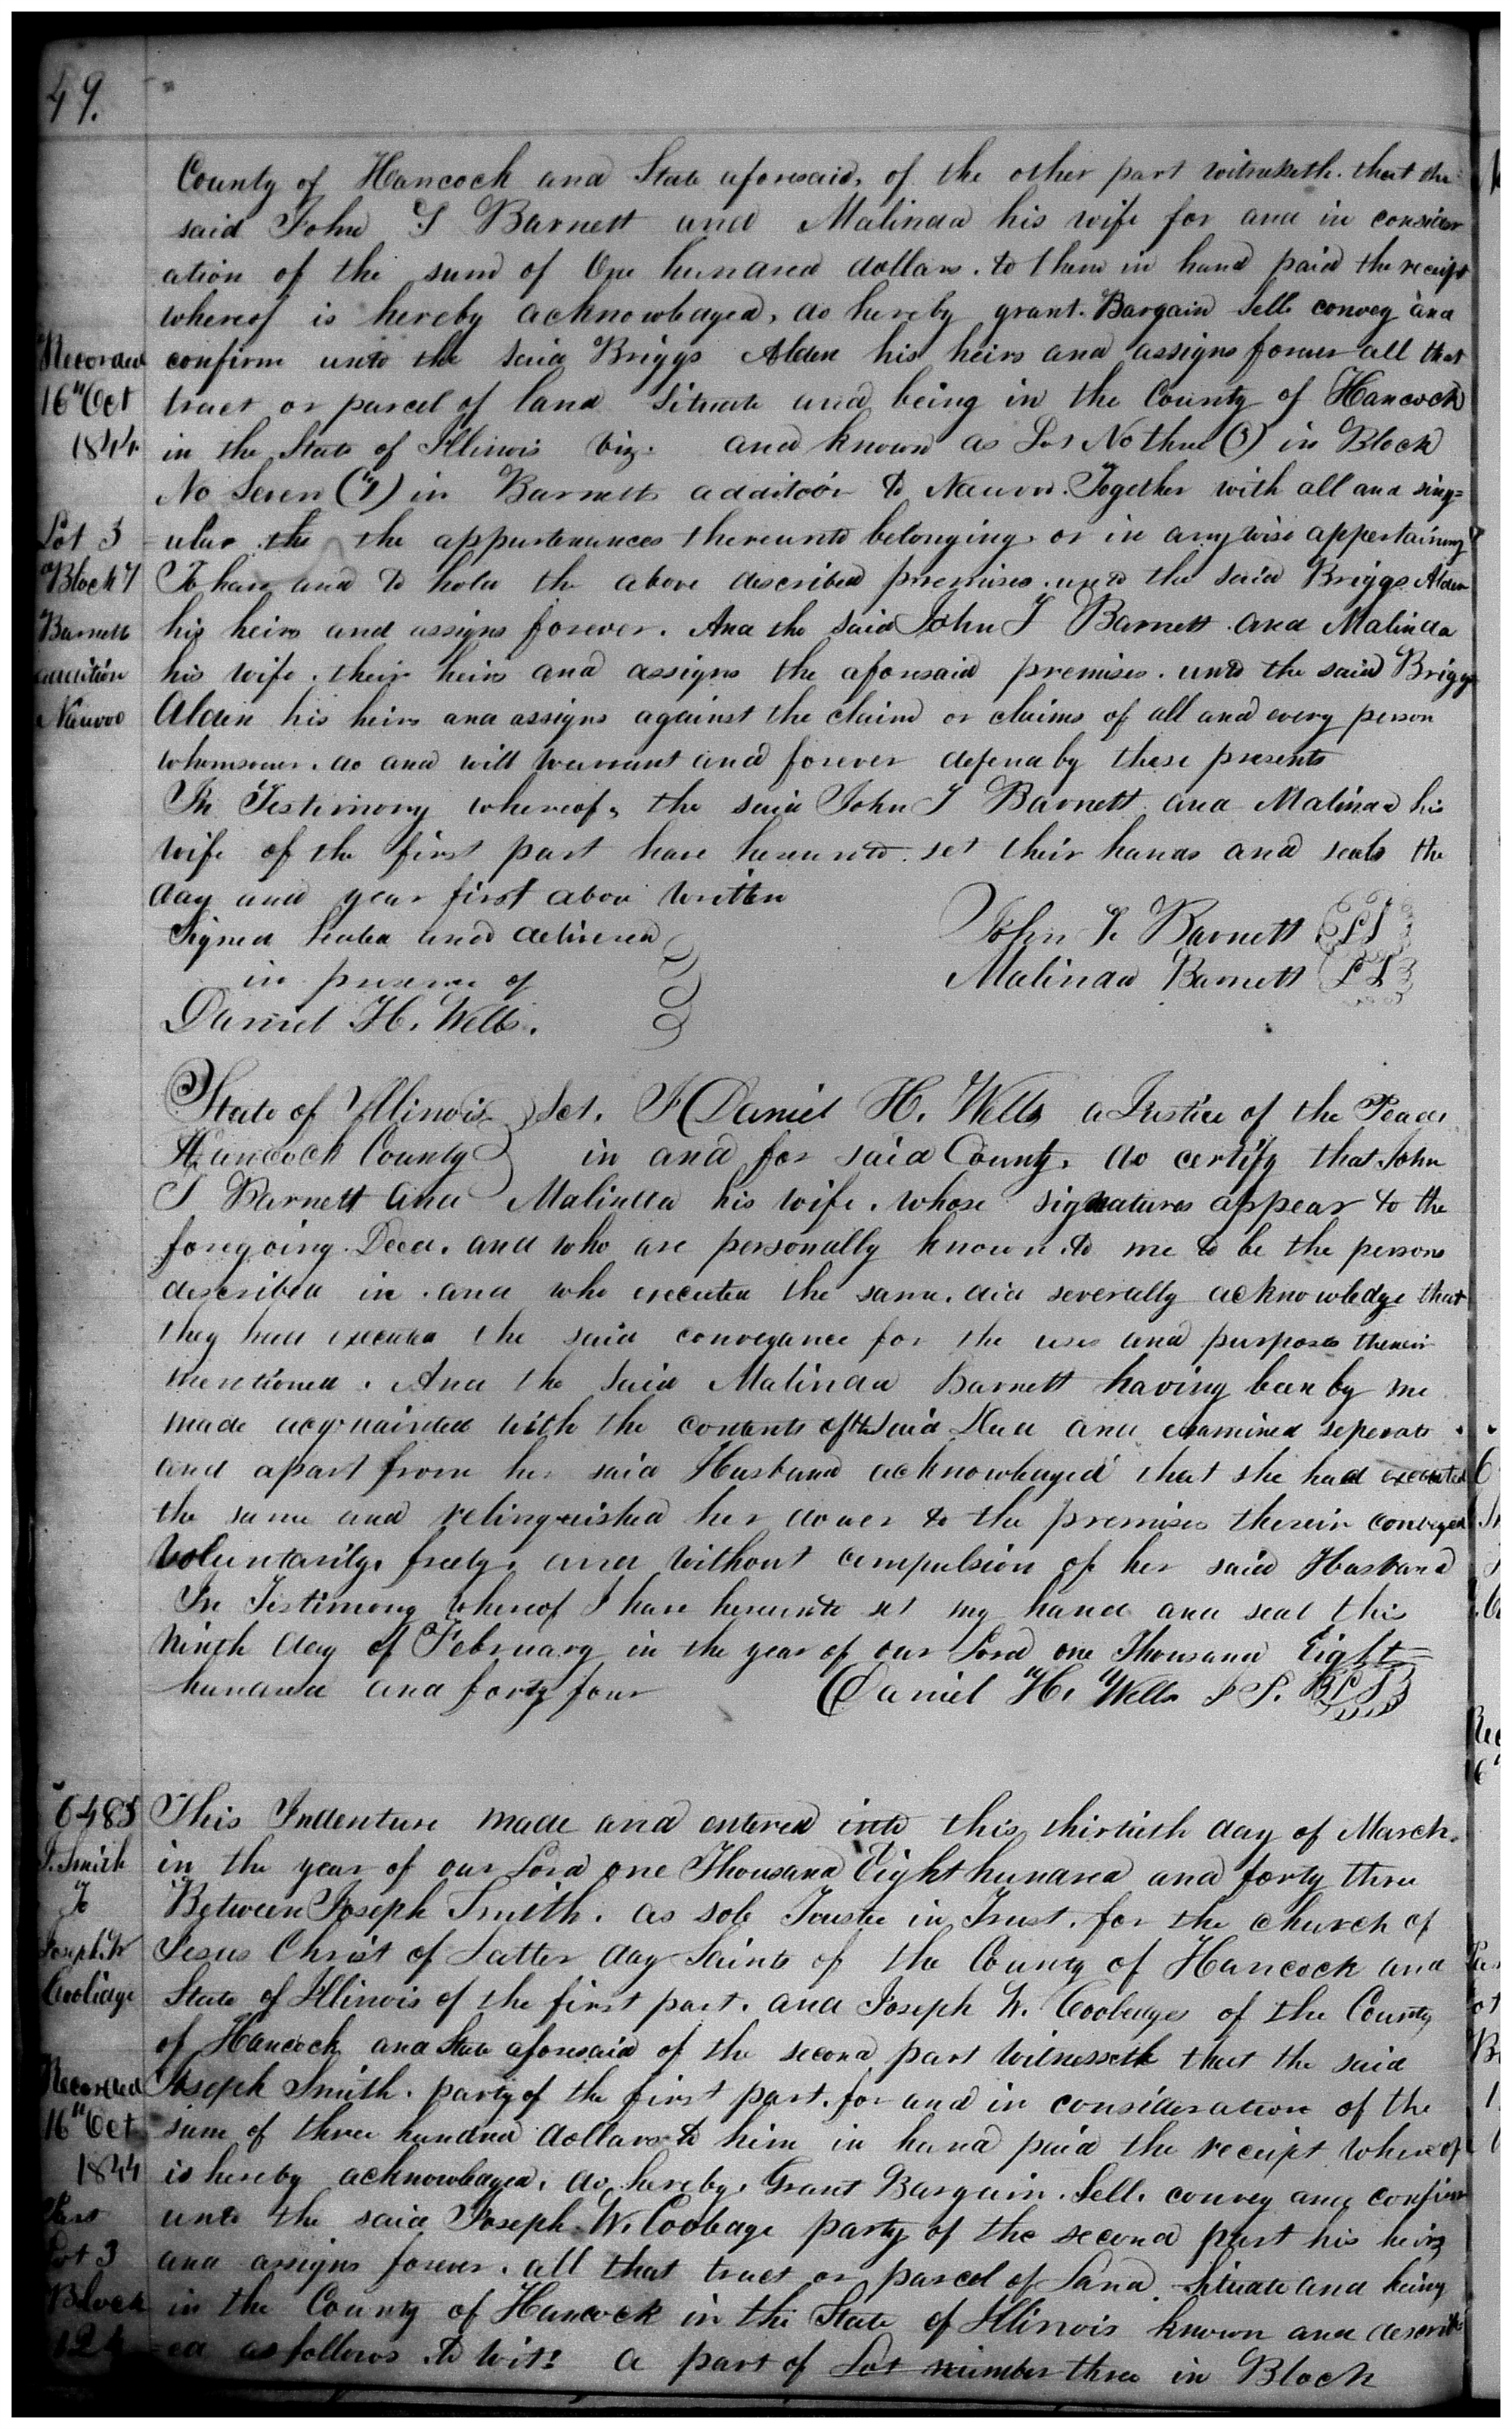 49.
County of Hancock and State aforesaid, of the other part witnesseth. that the
said John T Barnett and Malinda his wife for and in consider
ation of the sum of One hundred dollars. to them in hand paid the receipt
whereof is hereby acknowledged, do hereby grant. Bargain Sell convey and
Recorded confirm unto the said Briggs Alden his heirs and assigns forever all that
16th Oct tract or parcel of land situate and being in the County of Hancock
1844 in the State of Illinois viz. and known as Lot No three (3) in Block
No Seven (7) in Barnetts addition to Nauvoo. Together with all and sing=
Lot 3 ular the the appurtenances thereunto belonging. or in anywise appertaining
Block 7 To have and to hold the above described premises. unto the said Briggs Alden
Barnetts his heirs and assigns forever. And the said John T Barnett and Malinda
addition his wife. their heirs and assigns the aforesaid premises. unto the said Briggs
Nauvoo Alden his heirs and assigns against the claim or claims of all and every person
whomsoever. do and will warrant and forever defend by these presents
In Testimony whereof, the said John T Barnett and Malinda his
wife of the first part have hereunto. set their hands and seals the
day and year first above written
Signed Sealed and delivered John T. Barnett LS
in presence of Malinda Barnett LS
Daniel H. Wells.
State of Illinois Sct. I Daniel H. Wells a Justice of the Peace
Hancock County in and for said County, do certify that John
T Barnett and Malinda his wife. whose signatures appear to the
foregoing. Deed. and who are personally known. to me to be the persons
described in. and who executed the same. did severally acknowledge that
they had executed the said conveyance for the uses and purposes therein
mentioned. And the said Malinda Barnett having been by me
made acquainted with the contents of the said Deed and examined seperate
and apart from her said Husband acknowledged that she had executed
the same and relinquished her dower to the premises therein conveyed
Voluntarily. freely. and without compulsion of her said Husband
In Testimony whereof I have hereunto set my hand and seal this
Ninth day of February in the year of our Lord one Thousand Eight=
hundred and forty four Daniel H. Wells J P. LS
6485 This Indenture made and entered into this thirtieth day of March.
J. Smith in the year of our Lord one Thousand Eight hundred and forty three
To Between Joseph Smith. as sole Trustee in Trust. for the church of
Joseph W Jesus Christ of Latter day Saints of the County of Hancock and
Coolidge State of Illinois of the first part. and Joseph W. Coolidge of the County
of Hancock and State aforesaid of the second part Witnesseth that the said
Recorded Joseph Smith. party of the first part. for and in consideration of the
16th Oct sum of three hundred dollars to him in hand paid the receipt whereof
1844 is hereby acknowledged. do hereby. Grant Bargain. Sell. convey and confirm
Part unto the said Joseph W. Coolidge party of the second part his heirs
Lot 3 and assigns forever. all that tract or parcel of Land. Situate and being
Block in the County of Hancock in the State of Illinois known and describ
124 =ed as follows to wit: a part of Lot number three in Block